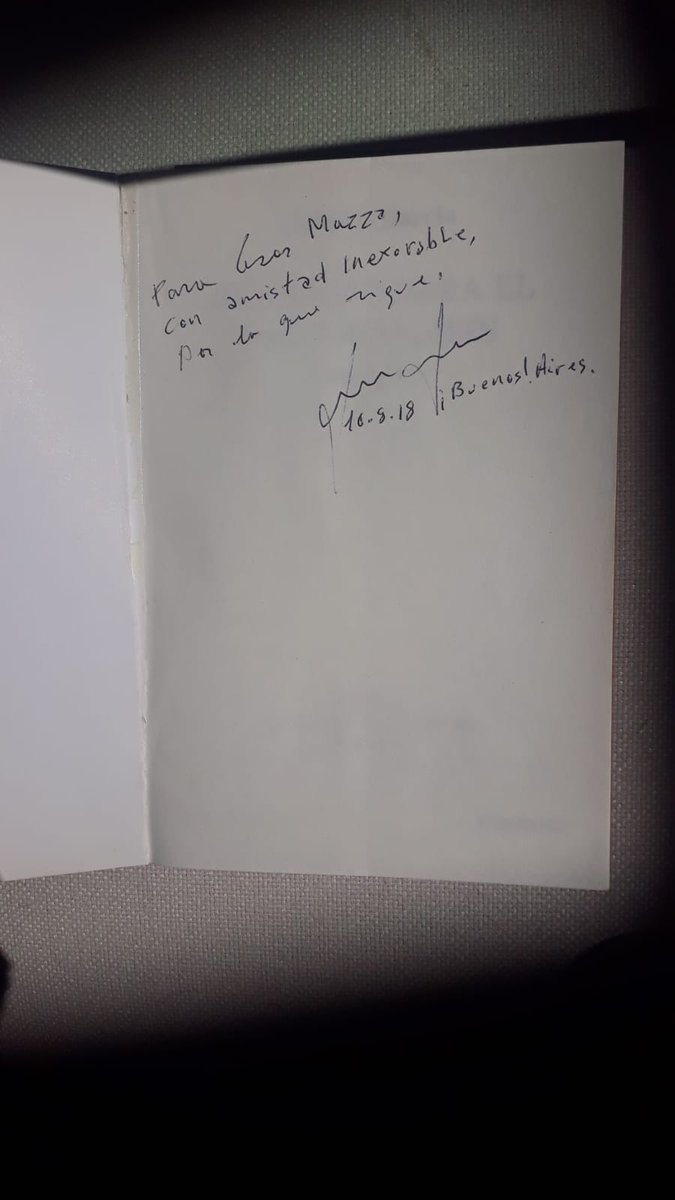 Para Cesar Mazza,
con amistad inexorable,
por lo que sigue.
10.8.18 ¡Buenos! Aires.